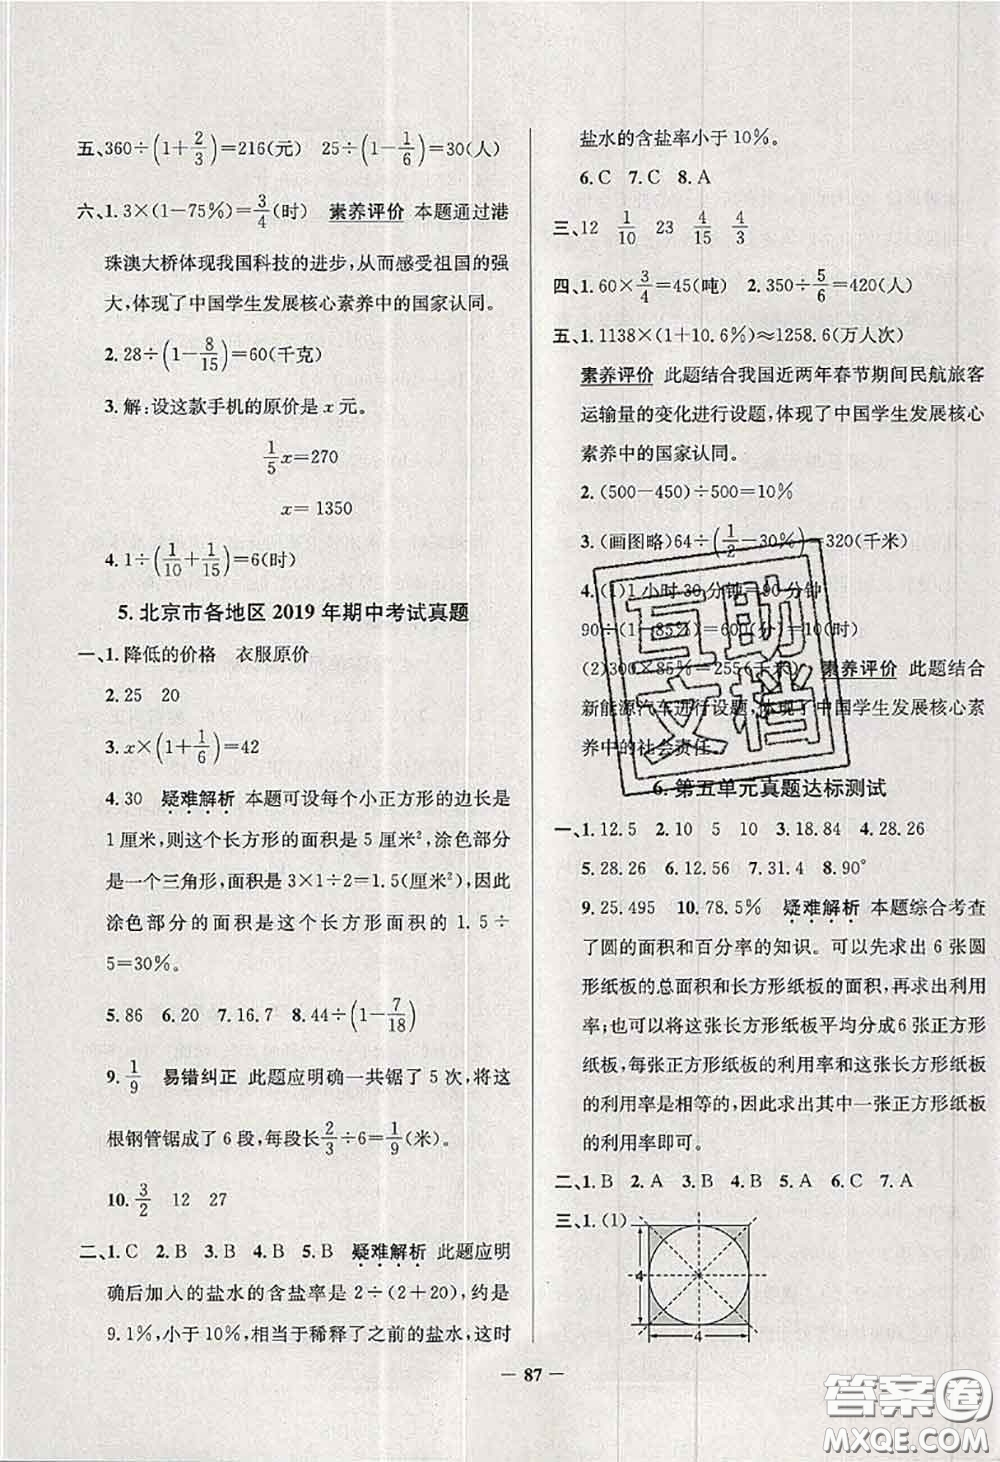 五、360÷(1+2/3)=216(元)　25÷(1−1/6)=30(人)
六、1. 3×(1−75%)=3/4(时)　素养评价　本题通过港
珠澳大桥体现我国科技的进步,从而感受祖国的强
大,体现了中国学生发展核心素养中的国家认同。
2. 28÷(1−8/15)=60(千克)
3. 解:设这款手机的原价是 x 元。
1/5 x=270
x= 1350
4. 1÷(1/10+1/15)=6(时)
5. 北京市各地区 2019 年期中考试真题
一、1. 降低的价格　衣服原价
2. 25　20
3. x×(1+1/6)=42
4. 30　疑难解析　本题可设每个小正方形的边长是
1 厘米,则这个长方形的面积是 5 厘米²,涂色部分
是一个三角形,面积是 3×1÷2=1.5(厘米²),因此
涂色部分的面积是这个长方形面积的 1.5÷
5=30%。
5. 86　6. 20　7. 16.7　8. 44÷(1−7/18)
9. 1/9　易错纠正　此题应明确一共锯了 5 次,将这
根钢管锯成了 6 段,每段长2/3÷6=1/9(米)。
10. 3/2　12　27
二、1. C　2. B　3. B　4. B　5. B　疑难解析　此题应明
确后加入的盐水的含盐率是 2÷(2+20),约是
9.1%,小于 10%,相当于稀释了之前的盐水,这时
盐水的含盐率小于 10%。
6. C　7. C　8. A
三、12　1/10　23　4/15　4/3
四、1. 60×3/4=45(吨)　2. 350÷5/6=420(人)
五、1. 1138×(1+10.6%)≈1258.6(万人次)
素养评价　此题结合我国近两年春节期间民航旅客
运输量的变化进行设题,体现了中国学生发展核心
素养中的国家认同。
2. (500−450)÷500=10%
3. (画图略)64÷(1/2−30%)=320(千米)
4. (1)1 小时 30 分钟=90 分钟
90÷(1−85%)÷60=10(时)
(2)300×85%=255(千米)　素养评价　此题结合
新能源汽车进行设题,体现了中国学生发展核心素
养中的社会责任。
6. 第五单元真题达标测试
一、1. 12.5　2. 10　5　10　3. 18.84　4. 28.26
5. 28.26　6. 12.56　7. 31.4　8. 90°
9. 25.495　10. 78.5%　疑难解析　本题综合考查
了圆的面积和百分率的知识。可以先求出 6 张圆
形纸板的总面积和长方形纸板的面积,再求出利用
率;也可以将这张长方形纸板平均分成 6 张正方形
纸板,每张正方形纸板的利用率和这张长方形纸板
的利用率是相等的,因此求出其中一张正方形纸板
的利用率即可。
二、1. B　2. A　3. B　4. B　5. A　6. C　7. A
三、1. (1)
4
4
— 87 —
互助
文档
答案圈
MXQE.COM